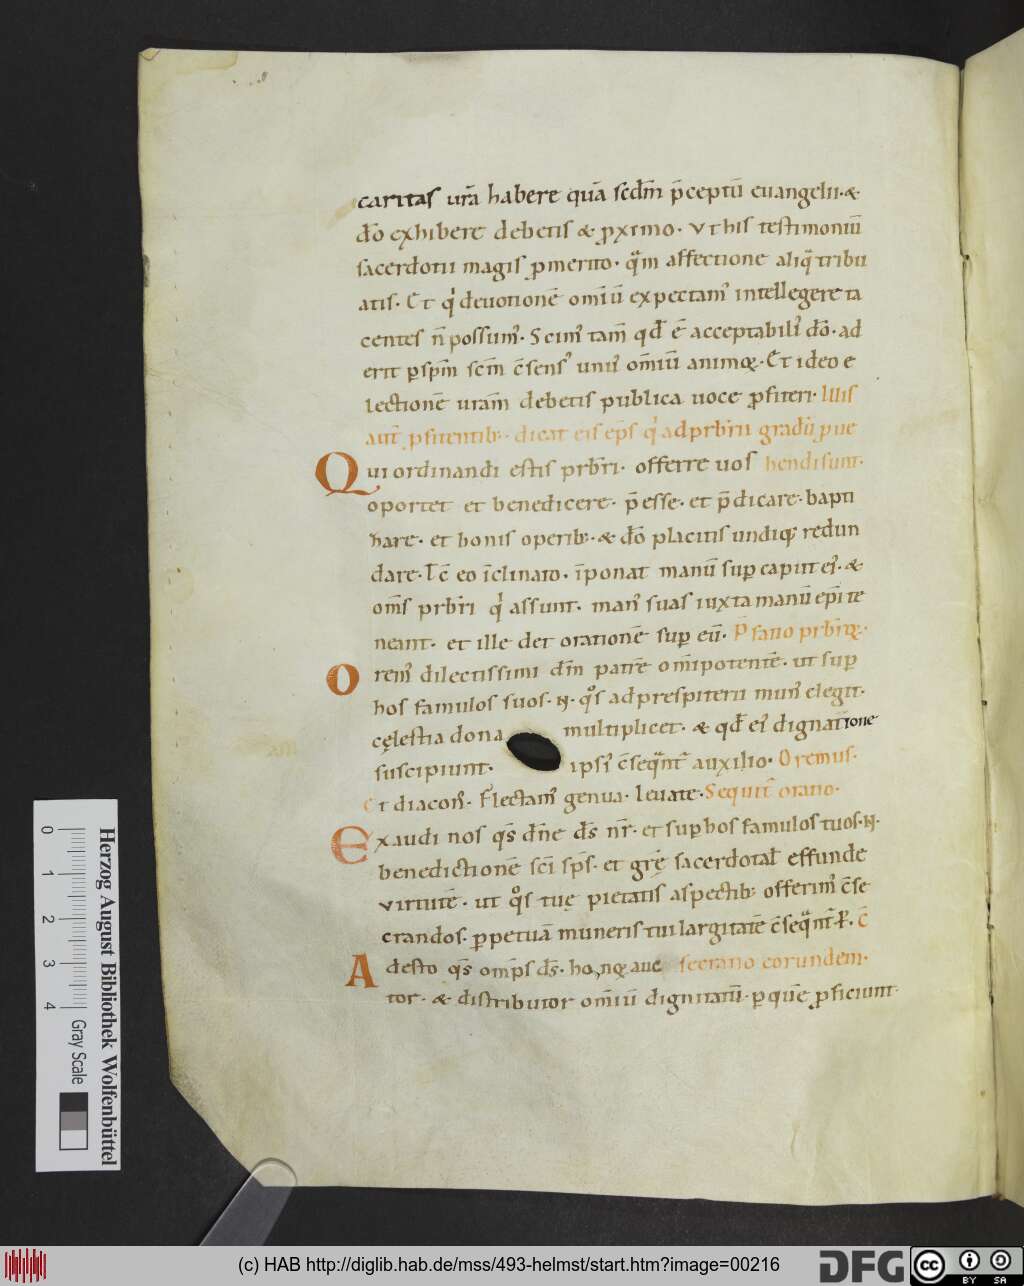 caritas ur̄a habere quā scd̄m p̄ceptū euangelii· &
dō exhibere debetis & ꝓximo· vt his testimoniū
sacerdotii magis ꝓmerito· q̄m affectione aliq̄ tribu
atis· Et q' deuotionē omiū expectam' intellegere ta
centes n̄ possum'· Scim' tam̄ qđ ē acceptabili' dō· ad
erit ꝑ sp̄m sc̄m c̄sens' uni' om̄iū animoꝝ· Et ideo e
lectionē ur̄am debetis publica uoce ꝓfiteri· Illis
aut̄ ꝓfitentib; dicat eis ep̄s q' ad prbr̄ii gradū ꝓue
Qui ordinandi estis prbr̄i· offerre uos hendi sunt·
oportet et benedicere· p̄esse· et p̄dicare· bapti
zare· et bonis operib;· & dō placitis undiq; redun
dare· Tc̄ eo īclinato· īponat manū suꝑ caput ei'· &
om̄s prbr̄i q' assunt· man' suas iuxta manū ep̄i te
neant· et ille det orationē suꝑ eū· P̄fatio prbr̄oꝝ·
Orem' dilectissimi dm̄ patrē om̄ipotentē· ut suꝑ
hos famulos suos· N· q°s ad prespiterii mun' elegit·
cęlestia dona multiplicet· & qđ ei' dignatione
suscipiunt· ipsi' c̄seq̄nt' auxilio· Oremus·
Et diacon'· Flectam' genua· leuate· Sequit̄ oratio·
Exaudi nos qs̄ dn̄e ds̄ nr̄· et suꝑ hos famulos tuos· N·
benedictionē sc̄i sp̄s· et grę̄ sacerdotal̄ effunde
virtutē· ut q°s tuę pietatis aspectib; offerim' c̄se
crandos· ꝑpetuā muneris tui largitatē c̄seq̄nt'· P̄· C̄
Adesto qs̄ omp̄s ds̄· honoꝝ auc secratio eorundem·
tor· & distributor om̄iū dignitatū· ꝑ quē ꝓficiunt
Herzog August Bibliothek Wolfenbüttel
0 1 2 3 4
Gray Scale
(c) HAB http://diglib.hab.de/mss/493-helmst/start.htm?image=00216
DFG
cc BY SA